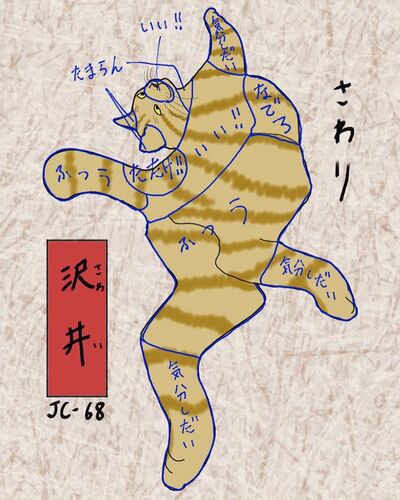 いい!!
気分しだい
たまらん
なでろ
いい!!
さわり
ふつう
たたけ!!
ふつう
気分しだい
沢井
さわい
気分しだい
JC-68